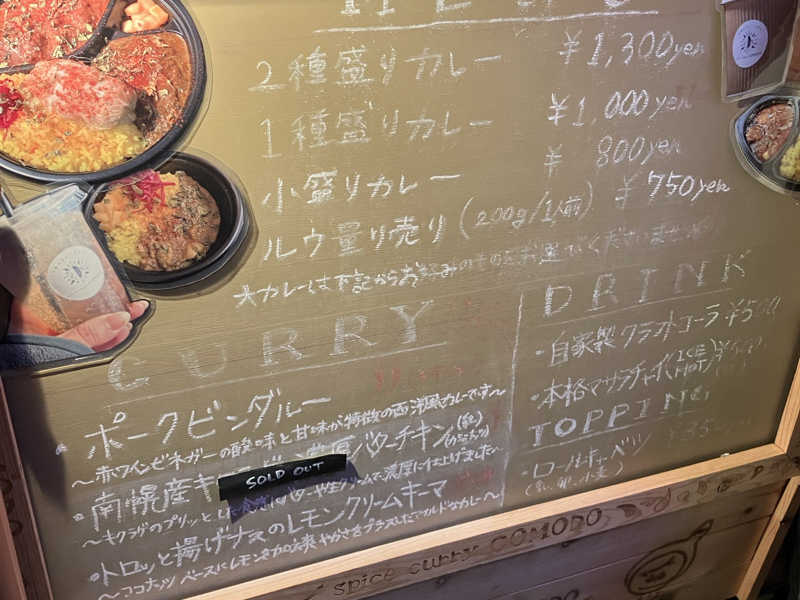 MENU
2種盛りカレー ¥1,300yen
1種盛りカレー ¥1,000yen
小盛りカレー ¥800yen
ルウ量り売り(200g/1人前) ¥750yen
★カレーは下記からお好みのものをお選びくださいませ
CURRY
・ポークビンダルー
〜赤ワインビネガーの酸味と甘味が特徴の西洋風カレーです〜
・南幌産キ 濃厚バターチキン
SOLD OUT
〜キクラゲのプリッと バターや生クリームで濃厚に仕上げました〜
・トロッと揚げナスのレモンクリームキーマ
〜ココナッツベースにレモンを加え爽やかさをプラスしたマイルドなカレー〜
DRINK
・自家製クラフトコーラ ¥500
・本格マサラチャイ(ICE HOT)
TOPPING
・ロールキャベツ
spice curry COMODO